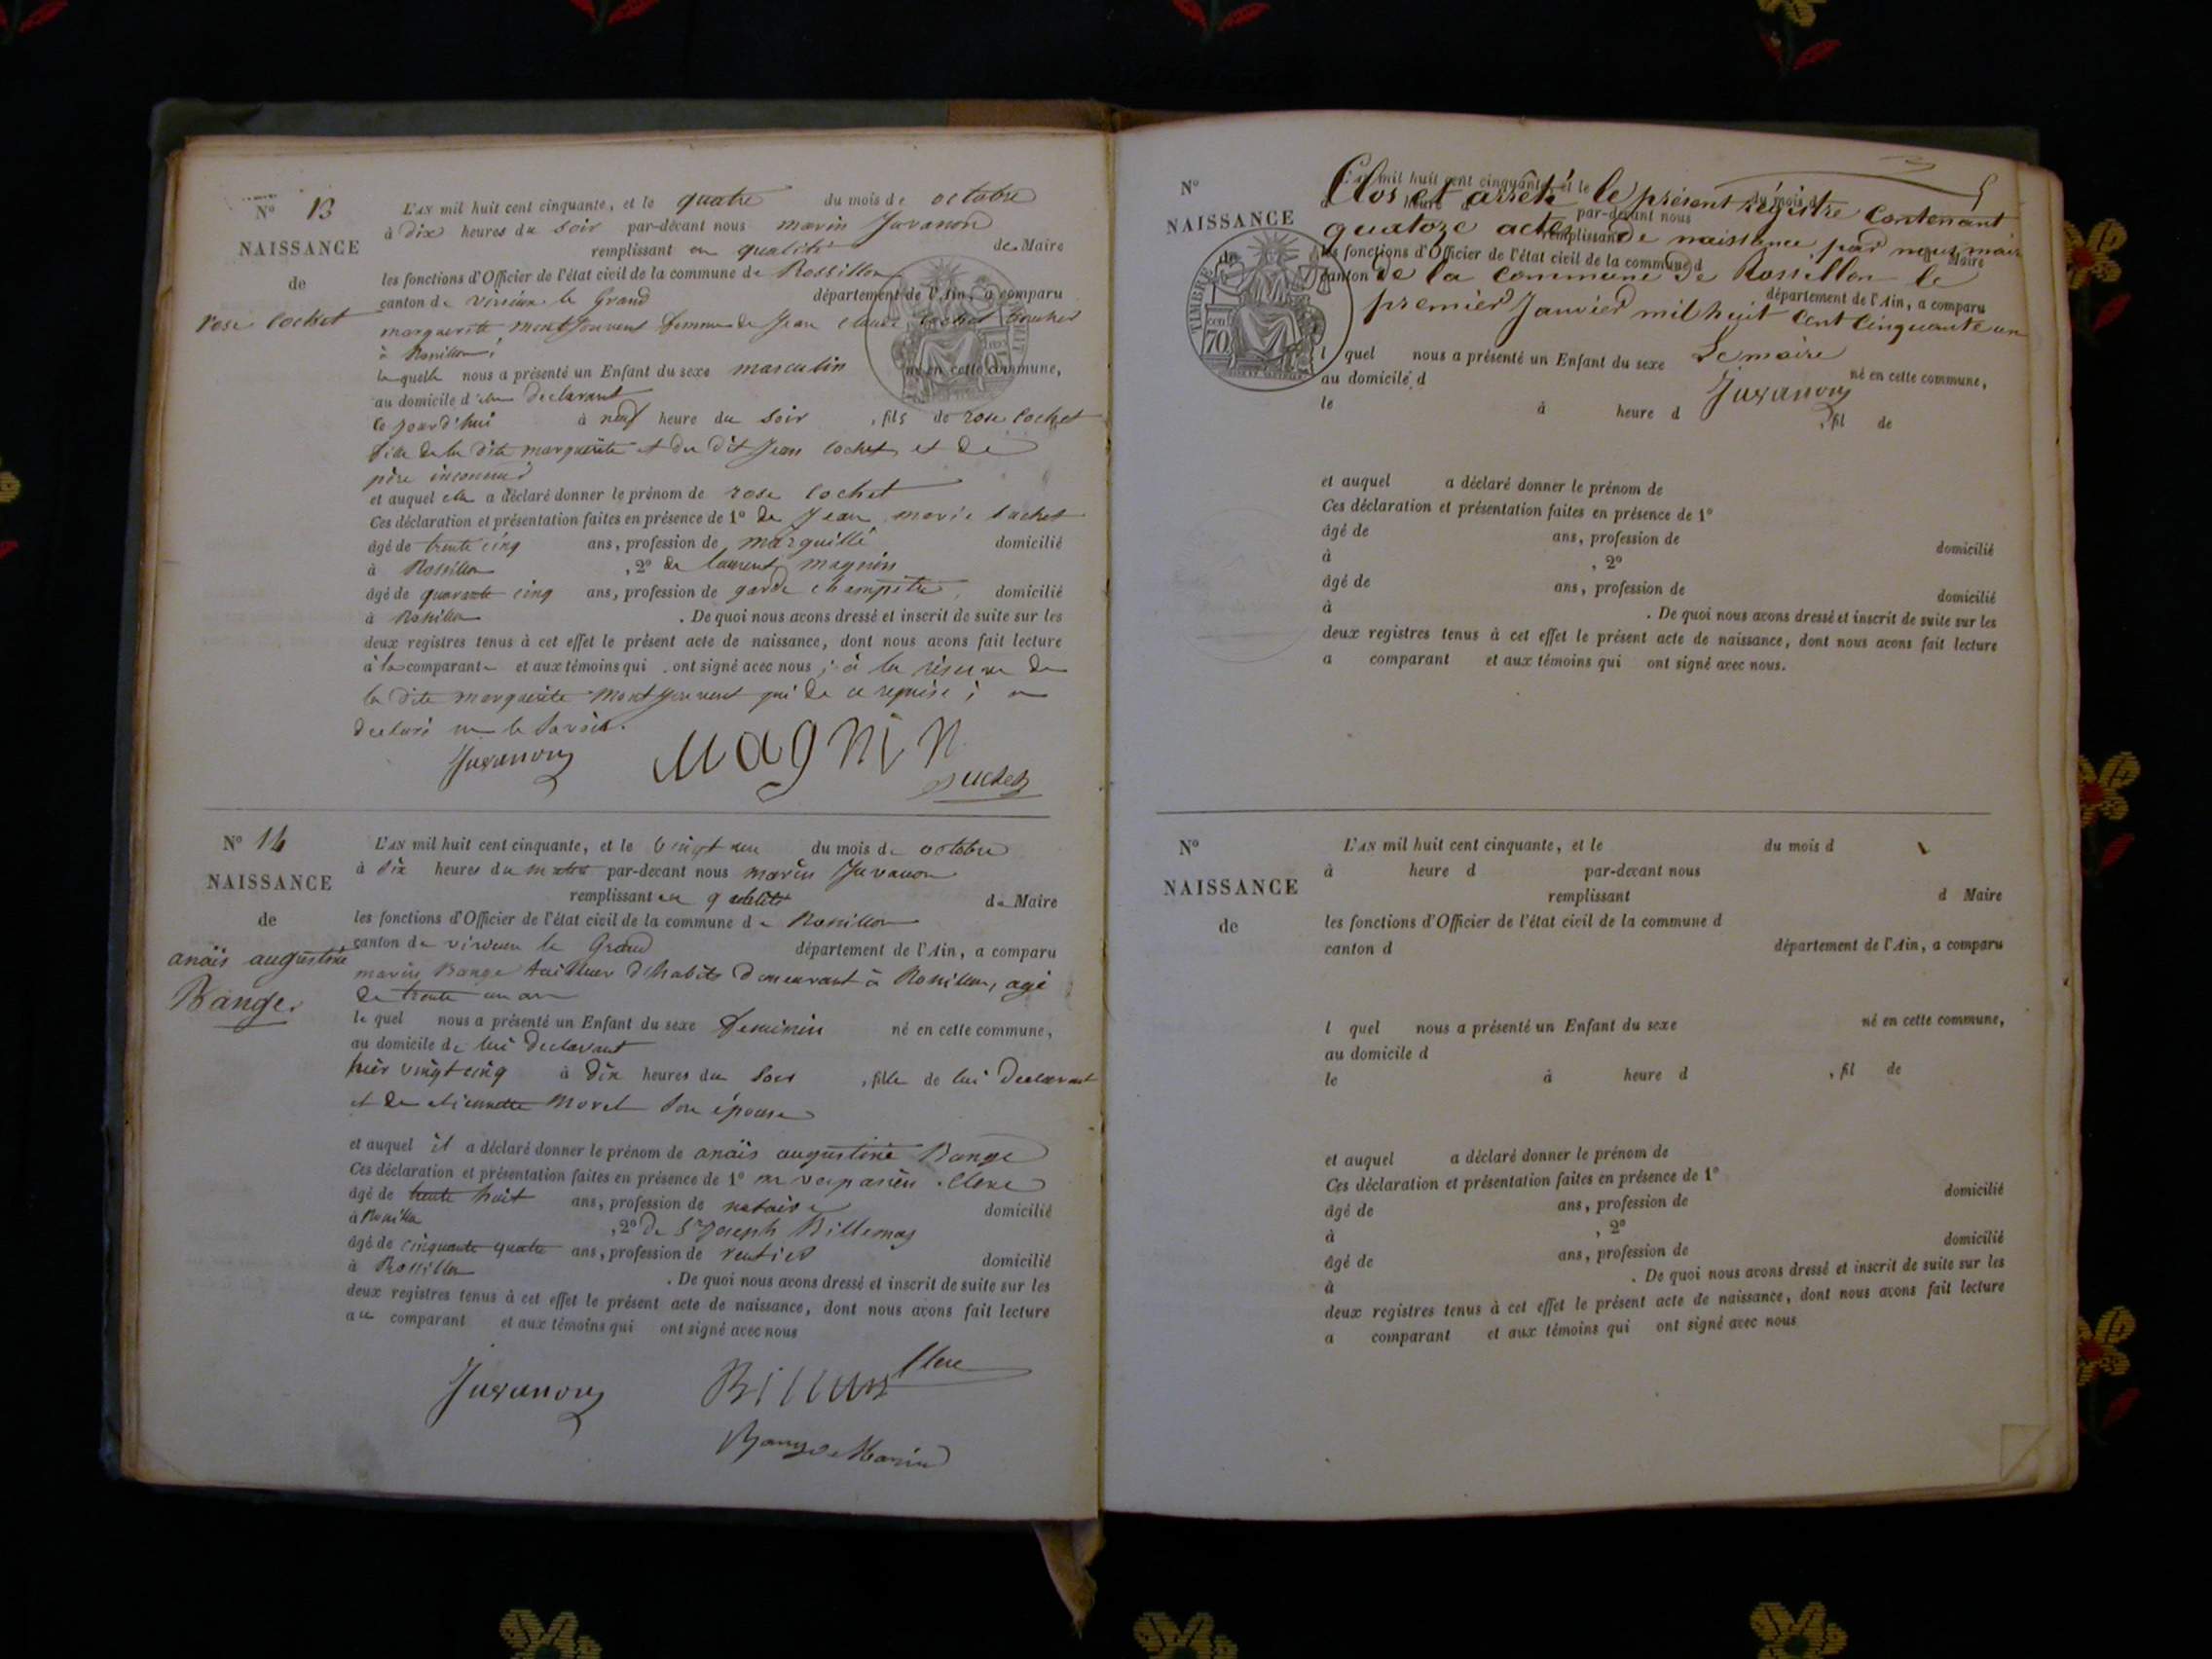 N° 13
NAISSANCE
de
rose cochet
L'AN mil huit cent cinquante, et le quatre du mois de octobre
à dix heures du soir par-devant nous marin Juvanon
remplissant en qualité de Maire
les fonctions d'Officier de l'état civil de la commune de Rossillon
canton de virieux le Grand département de l'Ain, a comparu
marguerite montjouvent femme de Jean claude cochet
à Rossillon
laquelle nous a présenté un Enfant du sexe masculin né en cette commune,
au domicile d'elle declarant
ce jourd'hui à neuf heure du soir , fils de rose cochet
fille de la dite marguerite et du dit Jean cochet et de
père inconnu
et auquel elle a déclaré donner le prénom de rose cochet
Ces déclaration et présentation faites en présence de 1° de Jean marie
âgé de trente cinq ans, profession de marguillé domicilié
à Rossillon , 2° de laurent magnin
âgé de quarante cinq ans, profession de garde champêtre, domicilié
à Rossillon . De quoi nous avons dressé et inscrit de suite sur les
deux registres tenus à cet effet le présent acte de naissance, dont nous avons fait lecture
à la comparante et aux témoins qui ont signé avec nous ; à la réserve de
la dite marguerite montjouvent qui de ce requise ; a
declaré ne le savoir.
Juvanon Magnin
N° 14
NAISSANCE
de
anaïs augustine
Bange.
L'AN mil huit cent cinquante, et le vingt du mois de octobre
à dix heures du matin par-devant nous marin Juvanon
remplissant en qualité de Maire
les fonctions d'Officier de l'état civil de la commune de Rossillon
canton de virieux le Grand département de l'Ain, a comparu
marin Bange tailleur d'habits demeurant à Rossillon, agé
de trente un an
le quel nous a présenté un Enfant du sexe feminin né en cette commune,
au domicile de lui declarant
hier vingt cinq à dix heures du soir , fille de lui declarant
et de etiennette Morel son épouse
et auquel il a déclaré donner le prénom de anaïs augustine Bange
Ces déclaration et présentation faites en présence de 1° mr vespasien Clerc
âgé de trente huit ans, profession de notaire domicilié
à Rossillon , 2° de Sr Joseph Billemaz
âgé de cinquante quatre ans, profession de rentier domicilié
à Rossillon . De quoi nous avons dressé et inscrit de suite sur les
deux registres tenus à cet effet le présent acte de naissance, dont nous avons fait lecture
au comparant et aux témoins qui ont signé avec nous
Juvanon Clerc
Bange Marin
N°
NAISSANCE
de
TIMBRE
70
L'AN mil huit cent cinquante, et le du mois d
à heure d par-devant nous
remplissant d Maire
les fonctions d'Officier de l'état civil de la commune d
canton d département de l'Ain, a comparu
Clos et arrêté le présent régistre Contenant
quatoze actes de naissance par nous maire
de la commune de Rossillon le
premier Janvier mil huit cent cinquante un
Le maire
Juvanon
l quel nous a présenté un Enfant du sexe né en cette commune,
au domicile d
le à heure d , fil de
et auquel a déclaré donner le prénom de
Ces déclaration et présentation faites en présence de 1°
âgé de ans, profession de domicilié
à , 2°
âgé de ans, profession de domicilié
à . De quoi nous avons dressé et inscrit de suite sur les
deux registres tenus à cet effet le présent acte de naissance, dont nous avons fait lecture
a comparant et aux témoins qui ont signé avec nous.
N°
NAISSANCE
de
L'AN mil huit cent cinquante, et le du mois d
à heure d par-devant nous
remplissant d Maire
les fonctions d'Officier de l'état civil de la commune d
canton d département de l'Ain, a comparu
l quel nous a présenté un Enfant du sexe né en cette commune,
au domicile d
le à heure d , fil de
et auquel a déclaré donner le prénom de
Ces déclaration et présentation faites en présence de 1°
âgé de ans, profession de domicilié
à , 2°
âgé de ans, profession de domicilié
à . De quoi nous avons dressé et inscrit de suite sur les
deux registres tenus à cet effet le présent acte de naissance, dont nous avons fait lecture
a comparant et aux témoins qui ont signé avec nous